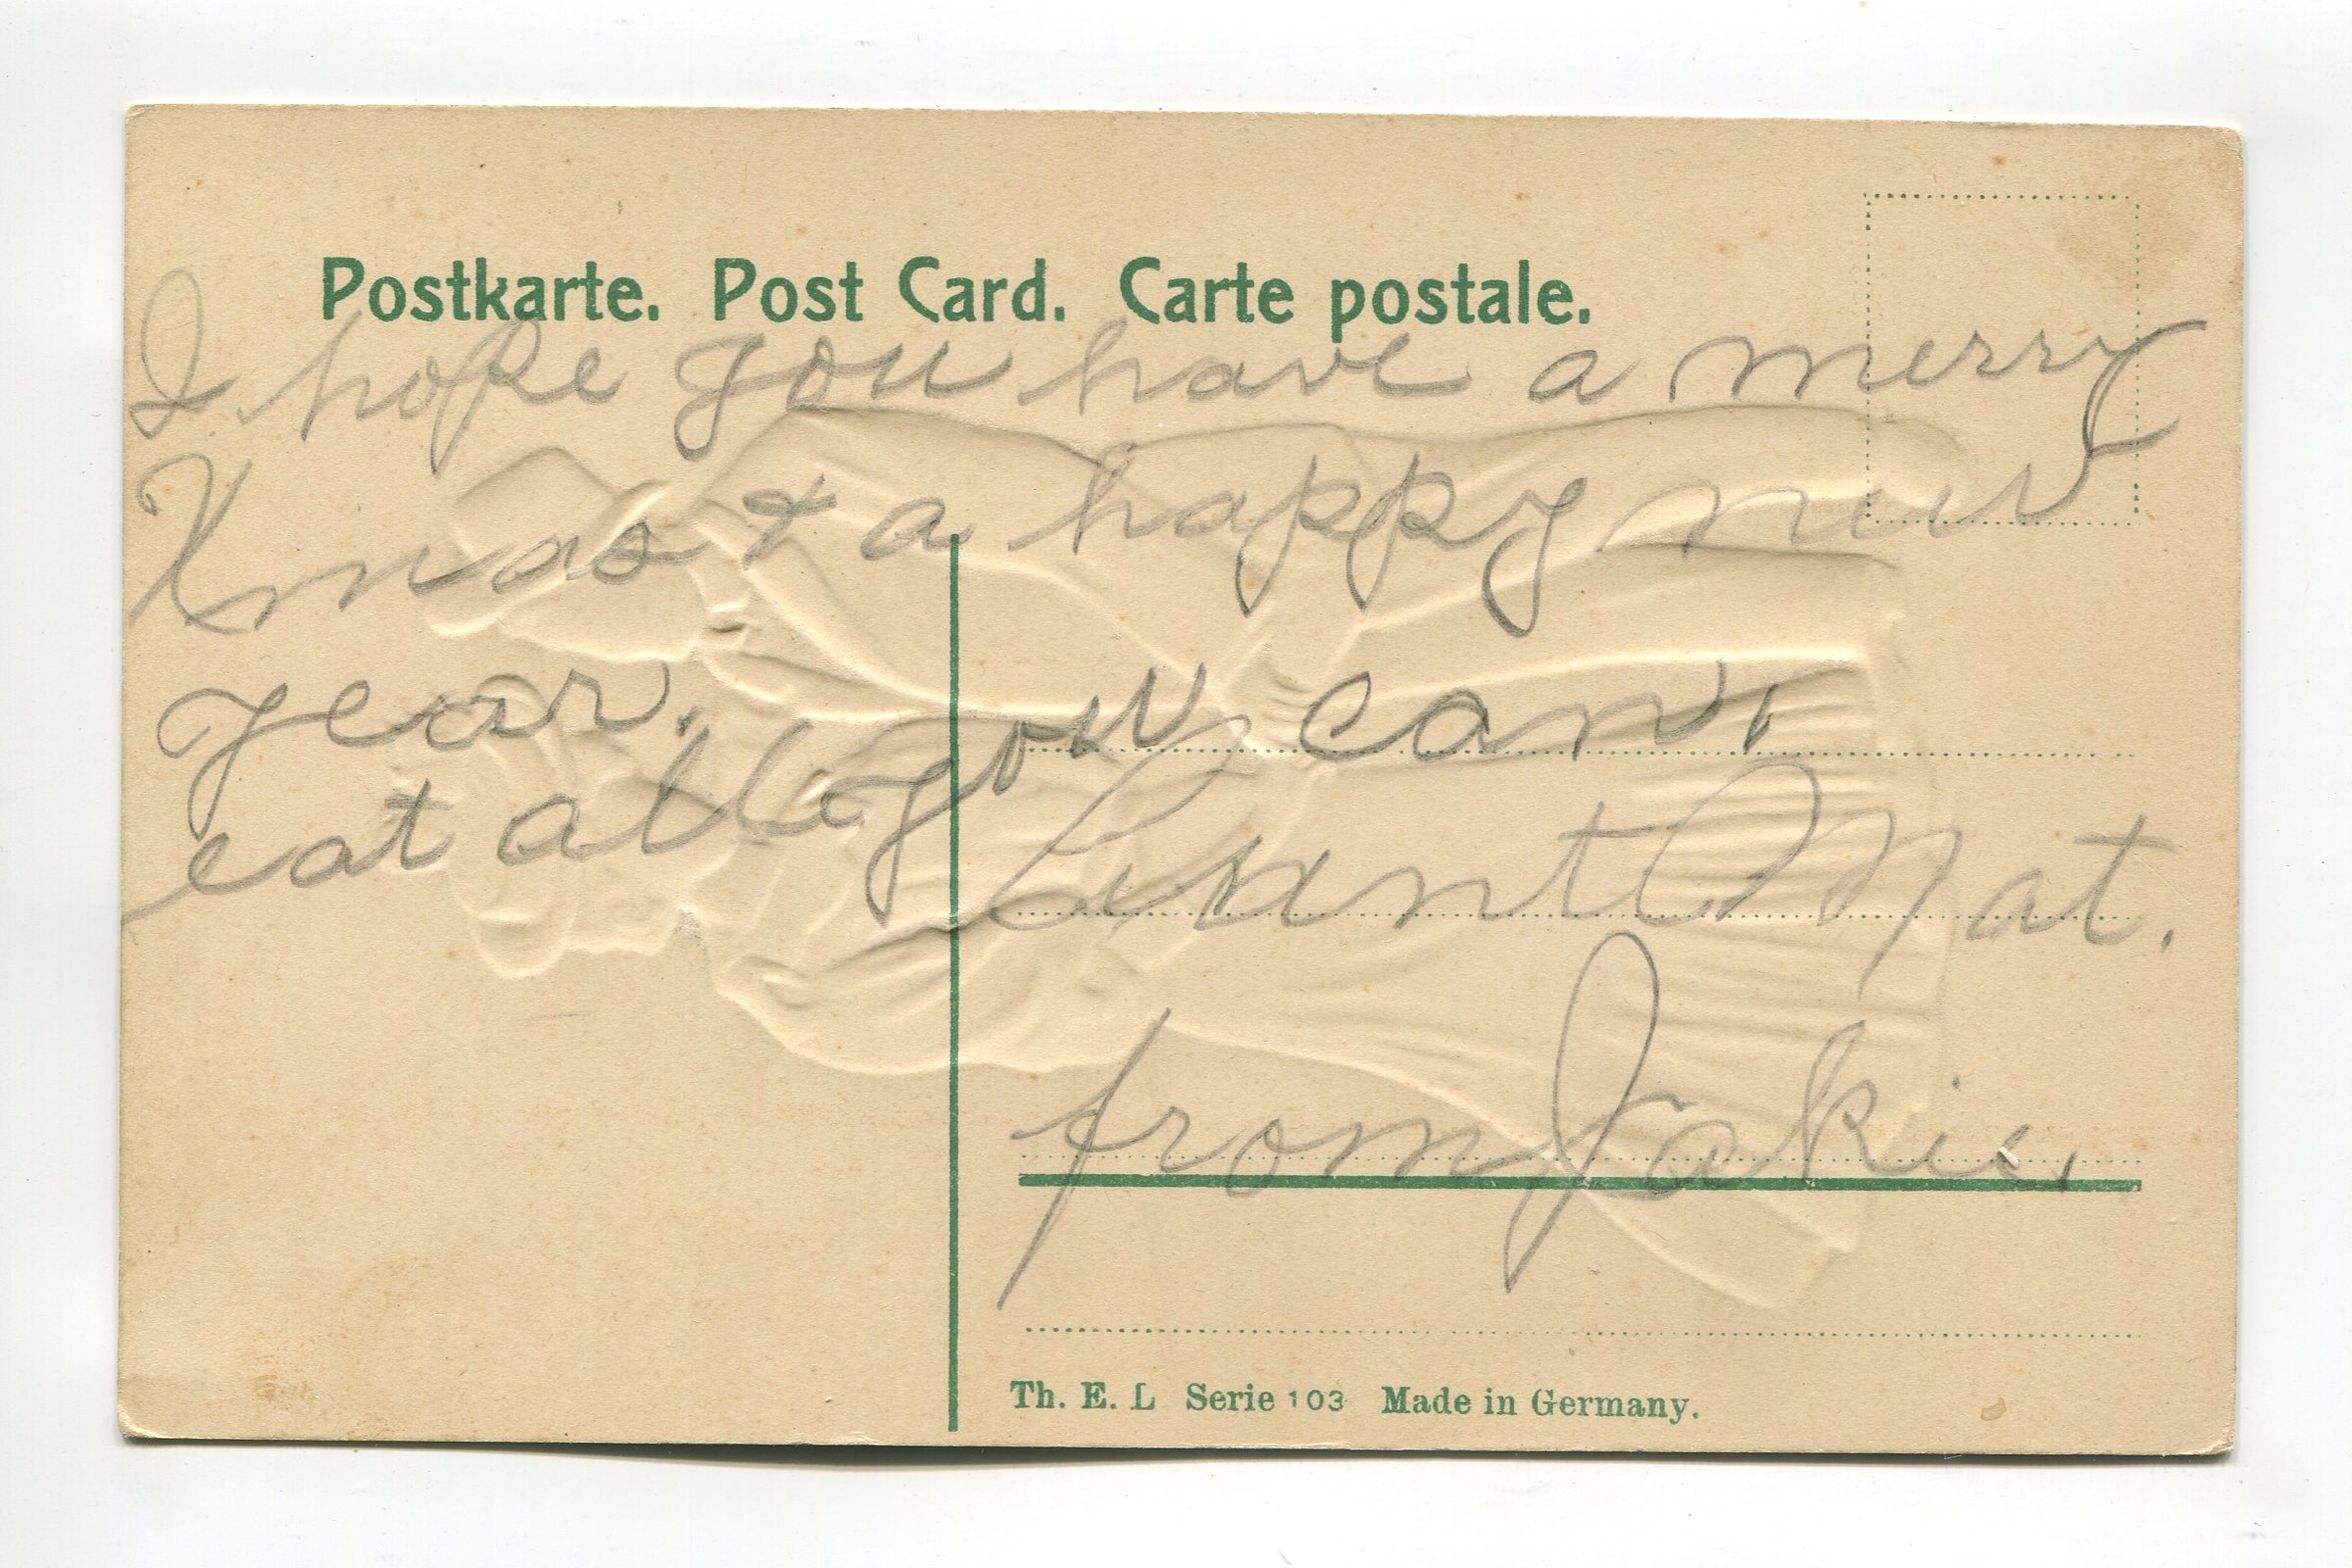 Postkarte. Post Card. Carte postale.
I hope you have a merry
Xmas & a happy new
year.
eat all you can.
Aunt Mat.
from Jakie.
Th. E. L Serie 103 Made in Germany.